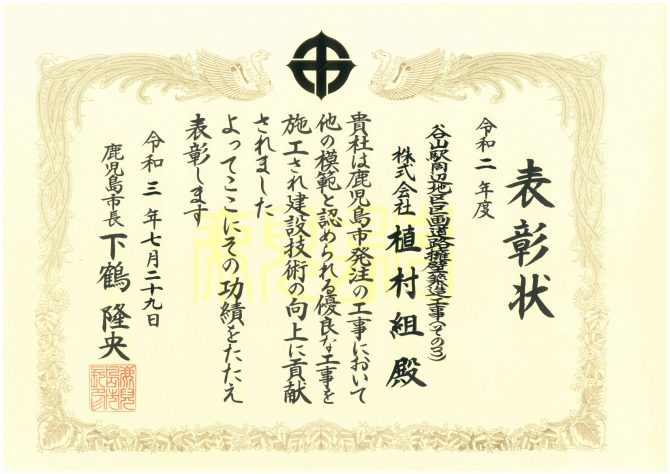 表彰状
令和二年度
谷山駅周辺地区区画道路擁壁築造工事(その3)
株式会社 植村組 殿
貴社は鹿児島市発注の工事において
他の模範と認められる優良な工事を
施工され建設技術の向上に貢献
されました
よってここにその功績をたたえ
表彰します
令和三年七月二十九日
鹿児島市長 下鶴隆央